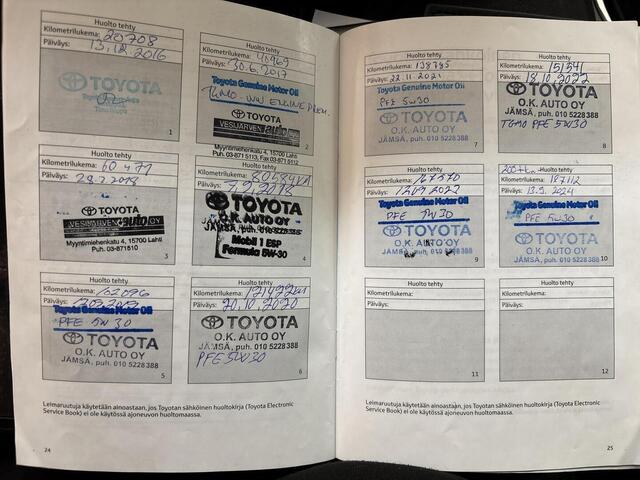 Huolto tehty
Kilometrilukema: 20708
Päiväys: 13.12.2016
TOYOTA
1
Huolto tehty
Kilometrilukema: 40969
Päiväys: 30.6.2017
Toyota Genuine Motor Oil
TGMO-
TOYOTA
VESIJÄRVEN auto
Myyntimiehenkatu 4, 15700 Lahti
Puh. 03-871 5113, Fax 03-871 5112
2
Huolto tehty
Kilometrilukema: 60 477
Päiväys: 28.2.2018
TOYOTA
VESIJÄRVEN auto OY
Myyntimiehenkatu 4, 15700 Lahti
Puh. 03-871510
3
Huolto tehty
Kilometrilukema:
Päiväys:
TOYOTA
O.K. AUTO OY
JÄMSÄ,
Mobil 1 ESP
Formula 5W-30
4
Huolto tehty
Kilometrilukema:
Päiväys:
Toyota Genuine Motor Oil
PFE 5W30
TOYOTA
O.K. AUTO OY
JÄMSÄ, puh. 010 5228 388
5
Huolto tehty
Kilometrilukema:
Päiväys: 20.10.2020
TOYOTA
O.K. AUTO OY
JÄMSÄ, puh. 010 5228 388
PFE 5W30
6
Leimaruutuja käytetään ainoastaan, jos Toyotan sähköinen huoltokirja (Toyota Electronic
Service Book) ei ole käytössä ajoneuvon huoltomaassa.
24
Huolto tehty
Kilometrilukema: 138785
Päiväys: 22.11.2021
Toyota Genuine Motor Oil
PFE 5W30
TOYOTA
O.K. AUTO OY
JÄMSÄ, puh. 010 5228 388
7
Huolto tehty
Kilometrilukema: 151541
Päiväys: 18.10.2022
TOYOTA
O.K. AUTO OY
JÄMSÄ, puh. 010 5228388
TGMO PFE 5W30
8
Huolto tehty
Kilometrilukema: 167570
Päiväys:
Toyota Genuine Motor Oil
PFE 5W30
TOYOTA
O.K. AUTO OY
JÄMSÄ, puh. 010 5228 388
9
Huolto tehty
Kilometrilukema: 187112
Päiväys: 13.9.2024
Toyota Genuine Motor Oil
PFE 5W30
TOYOTA
O.K. AUTO OY
JÄMSÄ, puh. 010 5228 388
10
Huolto tehty
Kilometrilukema:
Päiväys:
11
Huolto tehty
Kilometrilukema:
Päiväys:
12
Leimaruutuja käytetään ainoastaan, jos Toyotan sähköinen huoltokirja (Toyota Electronic
Service Book) ei ole käytössä ajoneuvon huoltomaassa.
25